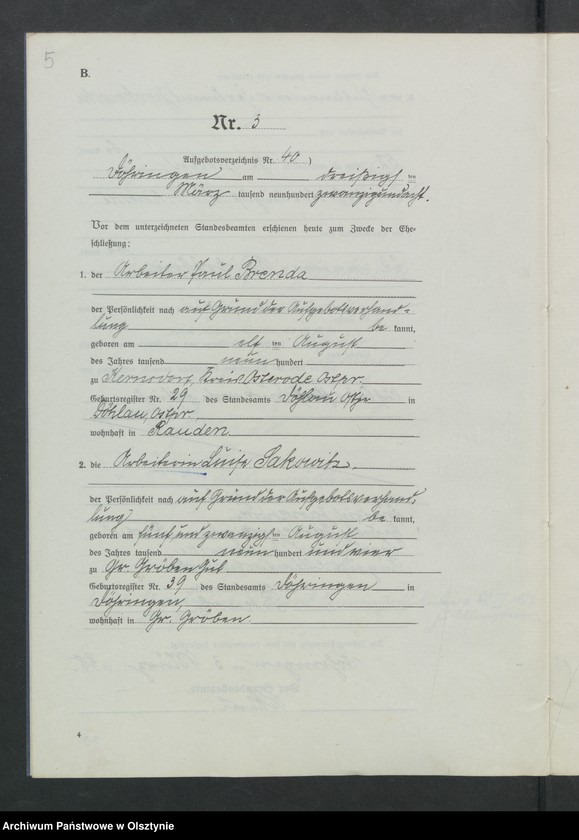 5
B.
Nr. 3
Aufgebotsverzeichnis Nr. 40)
Döhringen am dreißigsten
März tausend neunhundert zwanzigundacht.
Vor dem unterzeichneten Standesbeamten erschienen heute zum Zwecke der Ehe-
schließung:
1. der Arbeiter Paul Brenda
der Persönlichkeit nach auf Grund der Aufgebotsverhand-
lung be kannt,
geboren am elften August
des Jahres tausend neun hundert
zu Kernsdorf, Kreis Osterode Ostpr.
Geburtsregister Nr. 29 des Standesamts Döhlau Ostpr in
Döhlau, Ostpr
wohnhaft in Rauden.
2. die Arbeiterin Luise Sakowitz
der Persönlichkeit nach auf Grund der Aufgebotsverhand-
lung be kannt,
geboren am fünfundzwanzigsten August
des Jahres tausend neun hundert und vier
zu Gr. Gröben Gut
Geburtsregister Nr. 39 des Standesamts Döhringen in
Döhringen,
wohnhaft in Gr. Gröben.
4
Archiwum Państwowe w Olsztynie